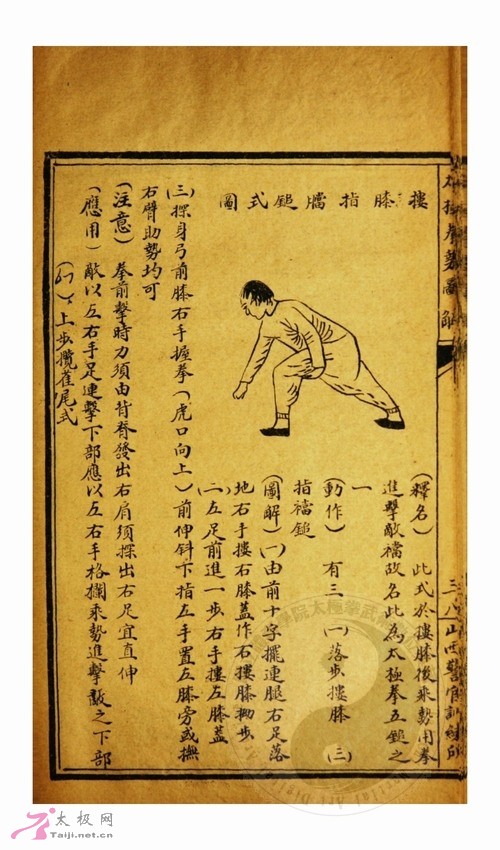 摟膝指襠鎚式圖
(釋名) 此式於摟膝後乘勢用拳
進擊敵襠故名此為太極拳五鎚之
一
(動作) 有三 (一)落步摟膝 (三)
指襠鎚
(圖解) (一)由前十字擺連腿右足落
地右手摟右膝蓋作右摟膝拗步
(二)左足前進一步右手摟左膝蓋
(三)探身弓前膝右手握拳(虎口向上)前伸斜下指左手置左膝旁或撫
右臂助勢均可
(注意) 拳前擊時力須由背脊發出右肩須探出右足宜直伸
(應用) 敵以左右手足連擊下部應以左右手格攔乘勢進擊敵之下部
上步攬雀尾式
三八
山西警官訓練所
太极网
Taiji.net.cn